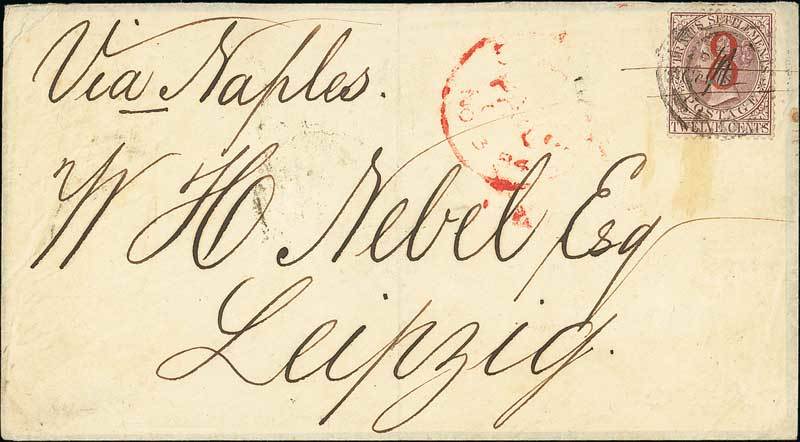 Via Naples.
STRAITS SETTLEMENTS
8
POSTAGE
TWELVE CENTS
W H Nebel Esq
Leipzig.